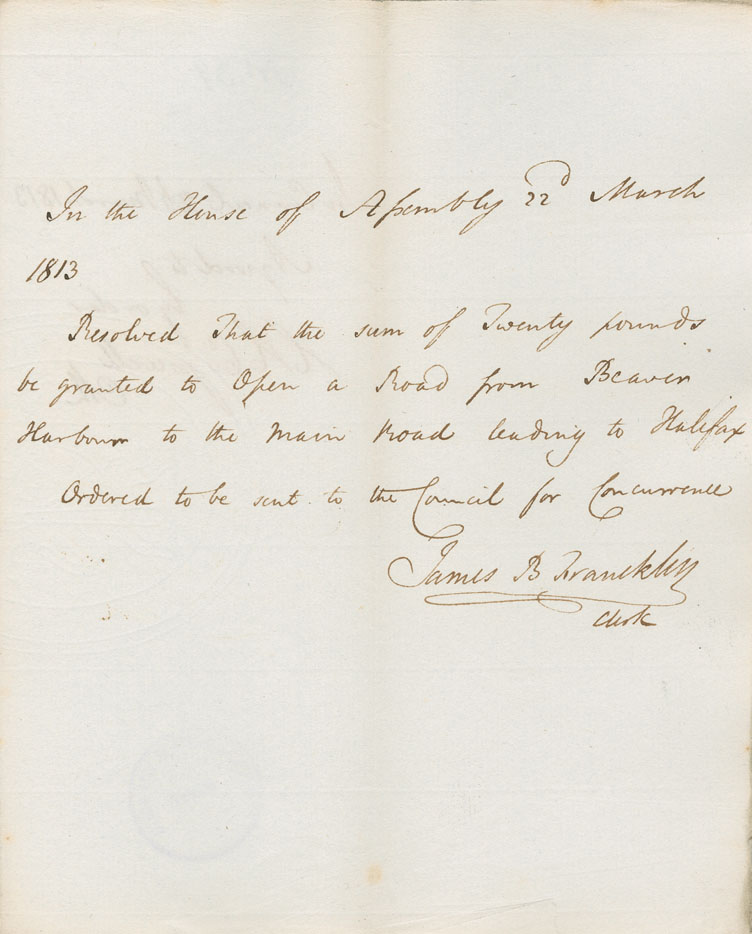 In the House of Assembly 22d March
1813
Resolved That the sum of Twenty pounds
be granted to Open a Road from Beaver
Harbour to the Main Road leading to Halifax
Ordered to be sent to the Council for Concurrence
James B Francklin
Clerk